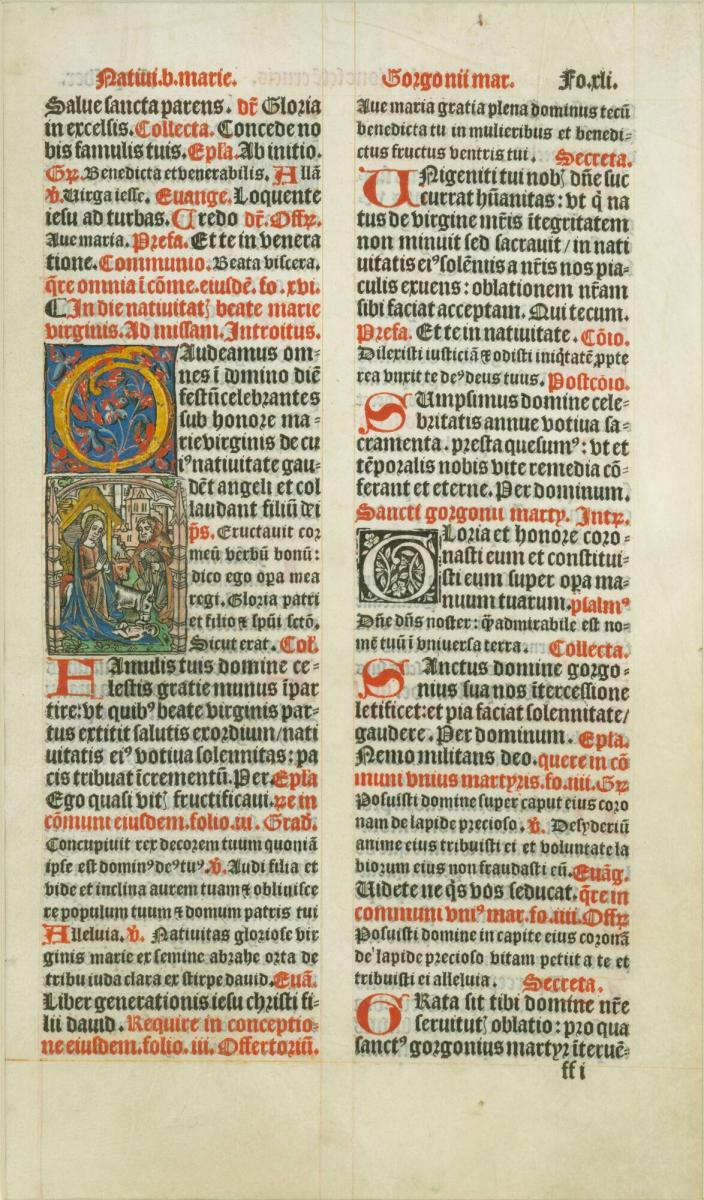 Natiui.b.marie.
Salue sancta parens. dr̃ Gloria
in excelsis. Collecta. Concede no
bis famulis tuis. Epl̃a. Ab initio.
Benedicta et venerabilis. Allã
Virga iesse. Euange. Loquente
iesu ad turbas. Credo dr̃.
Aue maria. Prefa. Et te in venera
tione. Communio. Beata viscera.
q̃re omnia ĩ cõme. eiusdẽ. fo. xvi.
In die nativitatꝭ beate marie
virginis. Ad missam. Introitus.
GAudeamus om-
nes ĩ domino diẽ
festũ celebrantes
sub honore ma-
rie virginis de cu
iꝰ natiuitate gau-
dẽt angeli et col
laudant filiũ dei
p̃s. Eructauit cor
meũ verbũ bonũ:
dico ego oꝑa mea
regi. Gloria patri
et filio ⁊ spũi sctõ.
Sicut erat. Col̃.
FAmulis tuis domine ce-
lestis gratie munus ĩpar
tire: vt quibꝰ beate virginis par-
tus extitit salutis exordium/nati
uitatis eiꝰ votiua solennitas: pa
cis tribuat ĩcrementũ. Per. Epl̃a
Ego quasi vitꝭ fructificaui. re in
cõmuni eiusdem. folio. iii. Grad.
Concupiuit rex decorem tuum quoniã
ipse est dominꝰ deꝰ tuꝰ. ꝟ. Audi filia et
vide et inclina aurem tuam ⁊ obliuisce
re populum tuum ⁊ domum patris tui
Alleluia. ꝟ. Natiuitas gloriose vir
ginis marie ex semine abrahe orta de
tribu iuda clara ex stirpe dauid. Euã.
Liber generationis iesu christi fi-
lii dauid. Require in conceptio-
ne eiusdem. folio. iii. Offertoriũ.
Gorgonii mar. Fo.xli.
Aue maria gratia plena dominus tecũ
benedicta tu in mulieribus et benedi-
ctus fructus ventris tui. Secreta.
VNigeniti tui nobꝭ dñe suc
currat hũanitas: vt q̇ na
tus de virgine mr̃is ĩtegritatem
non minuit sed sacrauit/in nati
uitatis eiꝰ solẽniis a nr̃is nos pia-
culis exuens: oblationem nr̃am
sibi faciat acceptam. Qui tecum.
Prefa. Et te in natiuitate. Cõio.
Dilexisti iusticiã ⁊ odisti iniq̇tatẽ ꝓpte
rea vnxit te deꝰ deus tuus. Postcõio.
SUmpsimus domine cele-
britatis annue votiua sa-
cramenta. presta quesumꝰ: vt et
tẽporalis nobis vite remedia cõ-
ferant et eterne. Per dominum.
Sancti gorgonii marty. Intr̃.
GLoria et honore coro-
nasti eum et constitui-
sti eum super oꝑa ma-
nuum tuarum. psalmꝰ
Dñe dñs noster: q̃ admirabile est no-
mẽ tuũ ĩ vniuersa terra. Collecta.
SAnctus domine gorgo-
nius sua nos ĩtercessione
letificet: et pia faciat solennitate/
gaudere. Per dominum. Epl̃a.
Nemo militans deo. quere in cõ
muni vnius martyris. fo. iiii. Gr̃
Posuisti domine super caput eius coro
nam de lapide precioso. ꝟ. Desyderiũ
anime eius tribuisti ei et voluntate la
biorum eius non fraudasti eũ. Euãg.
Videte ne q̇s vos seducat. q̃re in
communi vniꝰ mar. fo. iiii. Offr̃
Posuisti domine in capite eius coronã
de lapide precioso vitam petiit a te et
tribuisti ei alleluia. Secreta.
GRata sit tibi domine nr̃e
seruitutꝭ oblatio: pro qua
sanctꝰ gorgonius martyr ĩteruẽ-
ff i